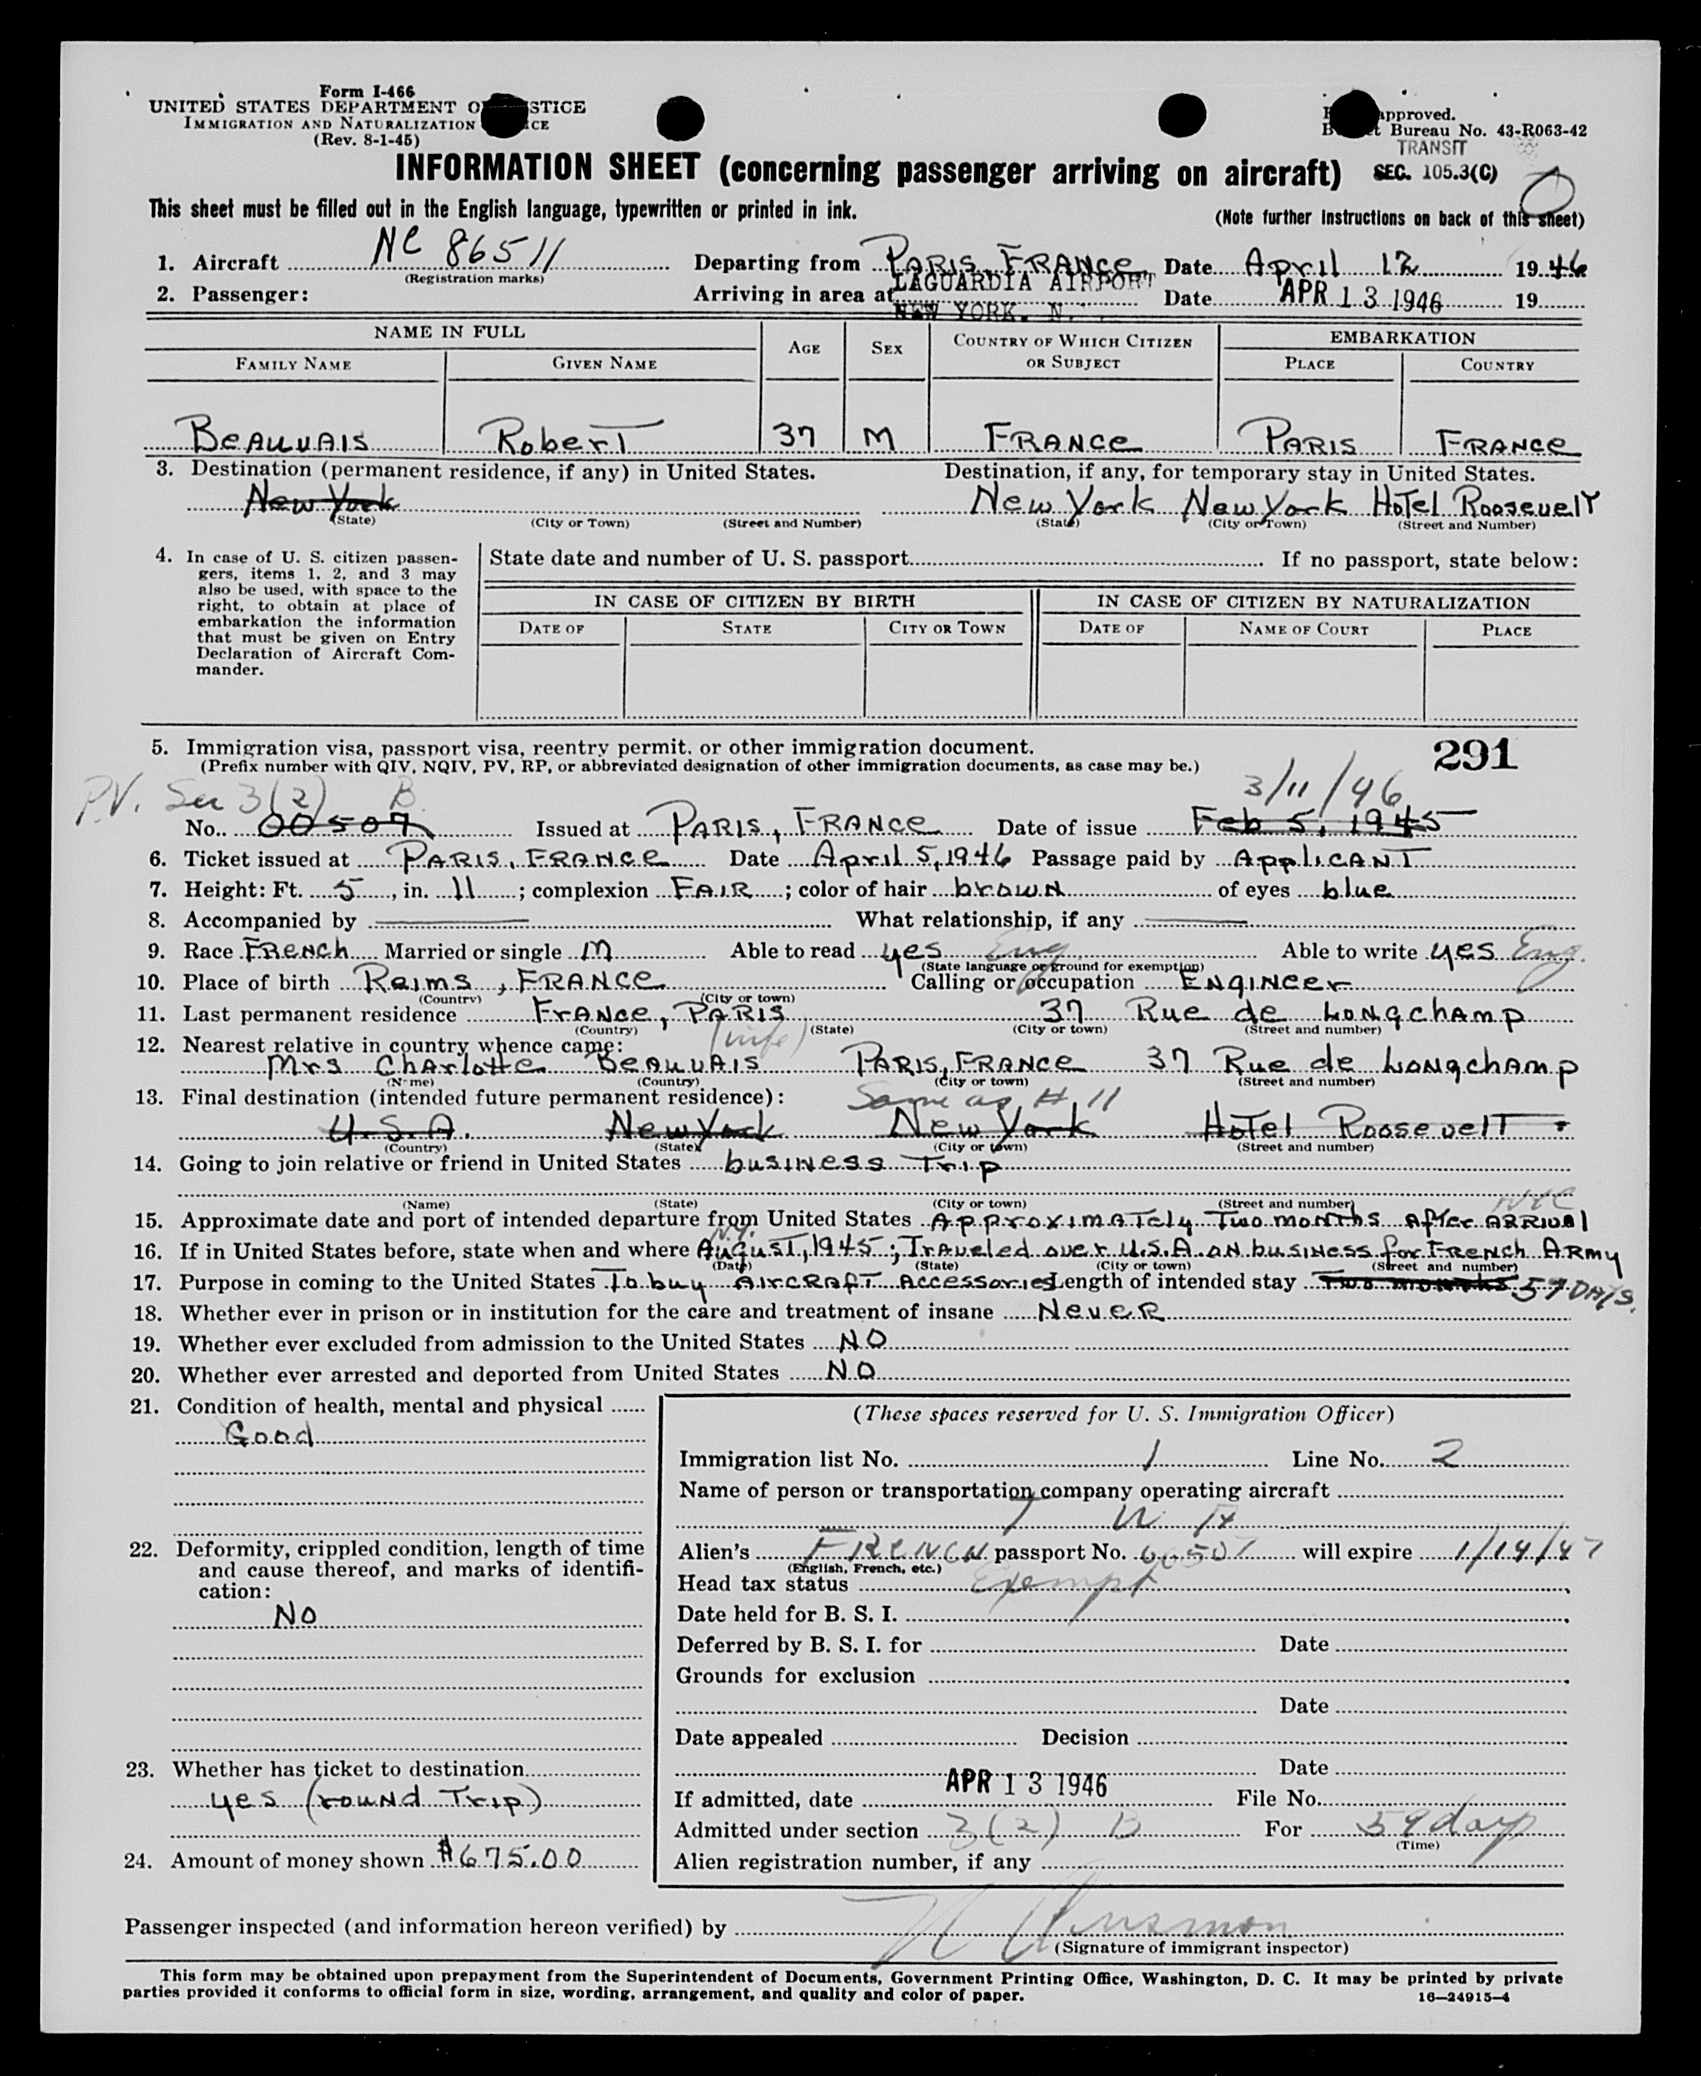 Form I-466
UNITED STATES DEPARTMENT OF JUSTICE
IMMIGRATION AND NATURALIZATION SERVICE
(Rev. 8-1-45)
Form approved.
Budget Bureau No. 43-R063-42
TRANSIT
SEC. 105.3(C)
INFORMATION SHEET (concerning passenger arriving on aircraft)
This sheet must be filled out in the English language, typewritten or printed in ink.
(Note further instructions on back of this sheet)
1. Aircraft NC 86511 Departing from PARIS, FRANCE Date April 12 1946
(Registration marks)
2. Passenger: Arriving in area at LAGUARDIA AIRPORT NEW YORK. N. Date APR 13 1946 19
NAME IN FULL AGE SEX COUNTRY OF WHICH CITIZEN OR SUBJECT EMBARKATION
FAMILY NAME GIVEN NAME PLACE COUNTRY
BEAUVAIS Robert 37 M FRANCE PARIS FRANCE
3. Destination (permanent residence, if any) in United States. Destination, if any, for temporary stay in United States.
New York New York New York Hotel Roosevelt
(State) (City or Town) (Street and Number) (State) (City or Town) (Street and Number)
4. In case of U. S. citizen passengers, items 1, 2, and 3 may also be used, with space to the right, to obtain at place of embarkation the information that must be given on Entry Declaration of Aircraft Commander.
State date and number of U. S. passport If no passport, state below:
IN CASE OF CITIZEN BY BIRTH IN CASE OF CITIZEN BY NATURALIZATION
DATE OF STATE CITY OR TOWN DATE OF NAME OF COURT PLACE
5. Immigration visa, passport visa, reentry permit, or other immigration document. 291
(Prefix number with QIV, NQIV, PV, RP, or abbreviated designation of other immigration documents, as case may be.)
P.V. Sec 3(2) B. 3/11/46
No. 00507 Issued at PARIS, FRANCE Date of issue Feb 5, 1945
6. Ticket issued at PARIS, FRANCE Date April 5, 1946 Passage paid by APPLICANT
7. Height: Ft. 5, in. 11; complexion FAIR; color of hair brown of eyes blue
8. Accompanied by What relationship, if any
9. Race FRENCH Married or single M Able to read yes Eng Able to write yes Eng.
(State language or ground for exemption)
10. Place of birth Reims, FRANCE Calling or occupation ENGINEER
(Country) (City or town)
11. Last permanent residence FRANCE, PARIS 37 Rue de Longchamp
(Country) (State) (City or town) (Street and number)
12. Nearest relative in country whence came: (wife)
Mrs Charlotte BEAUVAIS PARIS, FRANCE 37 Rue de Longchamp
(Name) (Country) (City or town) (Street and number)
13. Final destination (intended future permanent residence): Same as # 11
U.S.A. New York New York Hotel Roosevelt
(Country) (State) (City or town) (Street and number)
14. Going to join relative or friend in United States business Trip
(Name) (State) (City or town) (Street and number)
NYC
15. Approximate date and port of intended departure from United States Approximately Two months After ARRIVAl
N.Y.
16. If in United States before, state when and where August, 1945; Traveled over U.S.A. on business for French Army
(Date) (State) (City or town) (Street and number)
17. Purpose in coming to the United States To buy Aircraft Accessories Length of intended stay Two months 59 DAYS.
18. Whether ever in prison or in institution for the care and treatment of insane NeveR
19. Whether ever excluded from admission to the United States NO
20. Whether ever arrested and deported from United States NO
21. Condition of health, mental and physical
Good
22. Deformity, crippled condition, length of time and cause thereof, and marks of identification:
NO
23. Whether has ticket to destination
yes (round Trip)
24. Amount of money shown $675.00
(These spaces reserved for U. S. Immigration Officer)
Immigration list No. 1 Line No. 2
Name of person or transportation company operating aircraft
T W A
Alien's FRENCH passport No. 00507 will expire 1/14/47
(English, French, etc.)
Head tax status Exempt
Date held for B. S. I.
Deferred by B. S. I. for Date
Grounds for exclusion
Date
Date appealed Decision
Date
If admitted, date APR 13 1946 File No.
Admitted under section 3(2) B For 59 days
(Time)
Alien registration number, if any
Passenger inspected (and information hereon verified) by
(Signature of immigrant inspector)
This form may be obtained upon prepayment from the Superintendent of Documents, Government Printing Office, Washington, D. C. It may be printed by private
parties provided it conforms to official form in size, wording, arrangement, and quality and color of paper.
16—24915-4